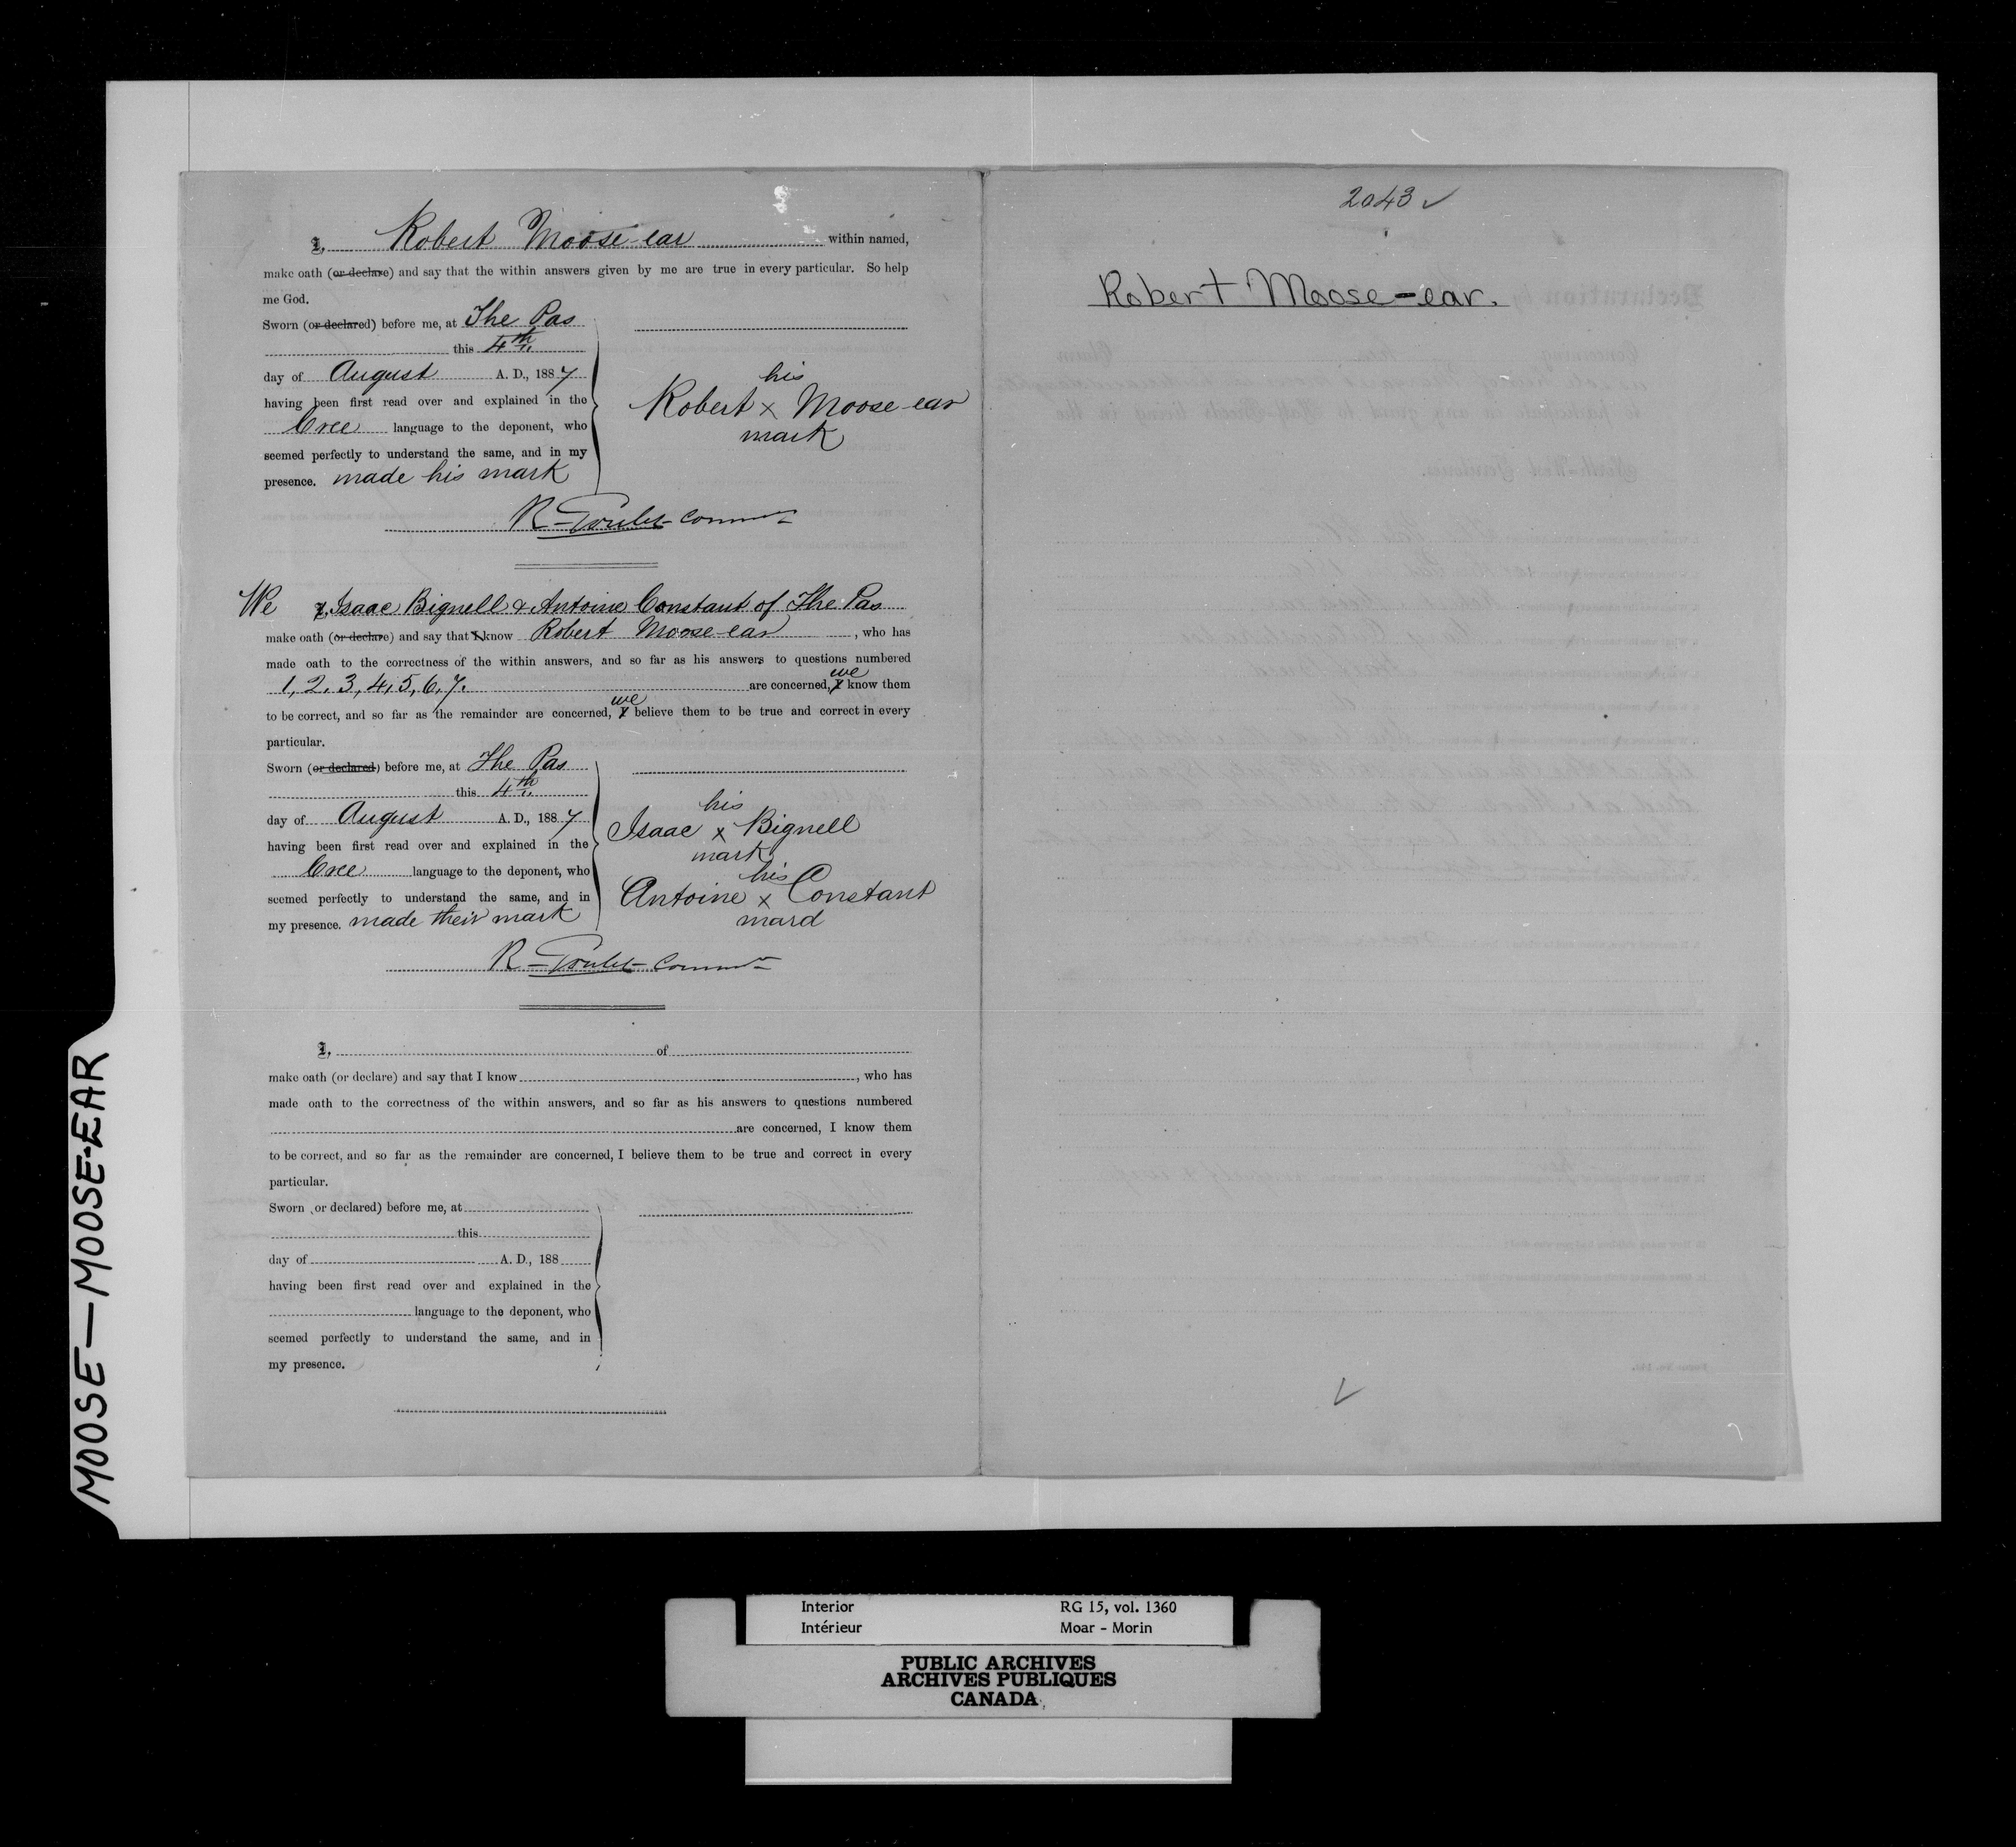 I, Robert Moose-ear within named,
make oath (or declare) and say that the within answers given by me are true in every particular. So help
me God.
Sworn (or declared) before me, at The Pas
this 4th
day of August A. D., 1887
having been first read over and explained in the
Cree language to the deponent, who
seemed perfectly to understand the same, and in my
presence. made his mark
his
Robert x Moose-ear
mark
R - Goulet - Commr
We I, Isaac Bignell & Antoine Constant of The Pas
make oath (or declare) and say that I know Robert Moose-ear, who has
made oath to the correctness of the within answers, and so far as his answers to questions numbered
we
1, 2, 3, 4, 5, 6, 7. are concerned, I know them
we
to be correct, and so far as the remainder are concerned, I believe them to be true and correct in every
particular.
Sworn (or declared) before me, at The Pas
this 4th
day of August A. D., 1887
having been first read over and explained in the
Cree language to the deponent, who
seemed perfectly to understand the same, and in
my presence. made their mark
his
Isaac x Bignell
mark
his
Antoine x Constant
mard
R - Goulet - Commr
I, of
make oath (or declare) and say that I know , who has
made oath to the correctness of the within answers, and so far as his answers to questions numbered
are concerned, I know them
to be correct, and so far as the remainder are concerned, I believe them to be true and correct in every
particular.
Sworn (or declared) before me, at
this
day of A. D., 188
having been first read over and explained in the
language to the deponent, who
seemed perfectly to understand the same, and in
my presence.
2043 ✓
Robert Moose-ear.
MOOSE—MOOSE-EAR
Interior RG 15, vol. 1360
Intérieur Moar - Morin
PUBLIC ARCHIVES
ARCHIVES PUBLIQUES
CANADA